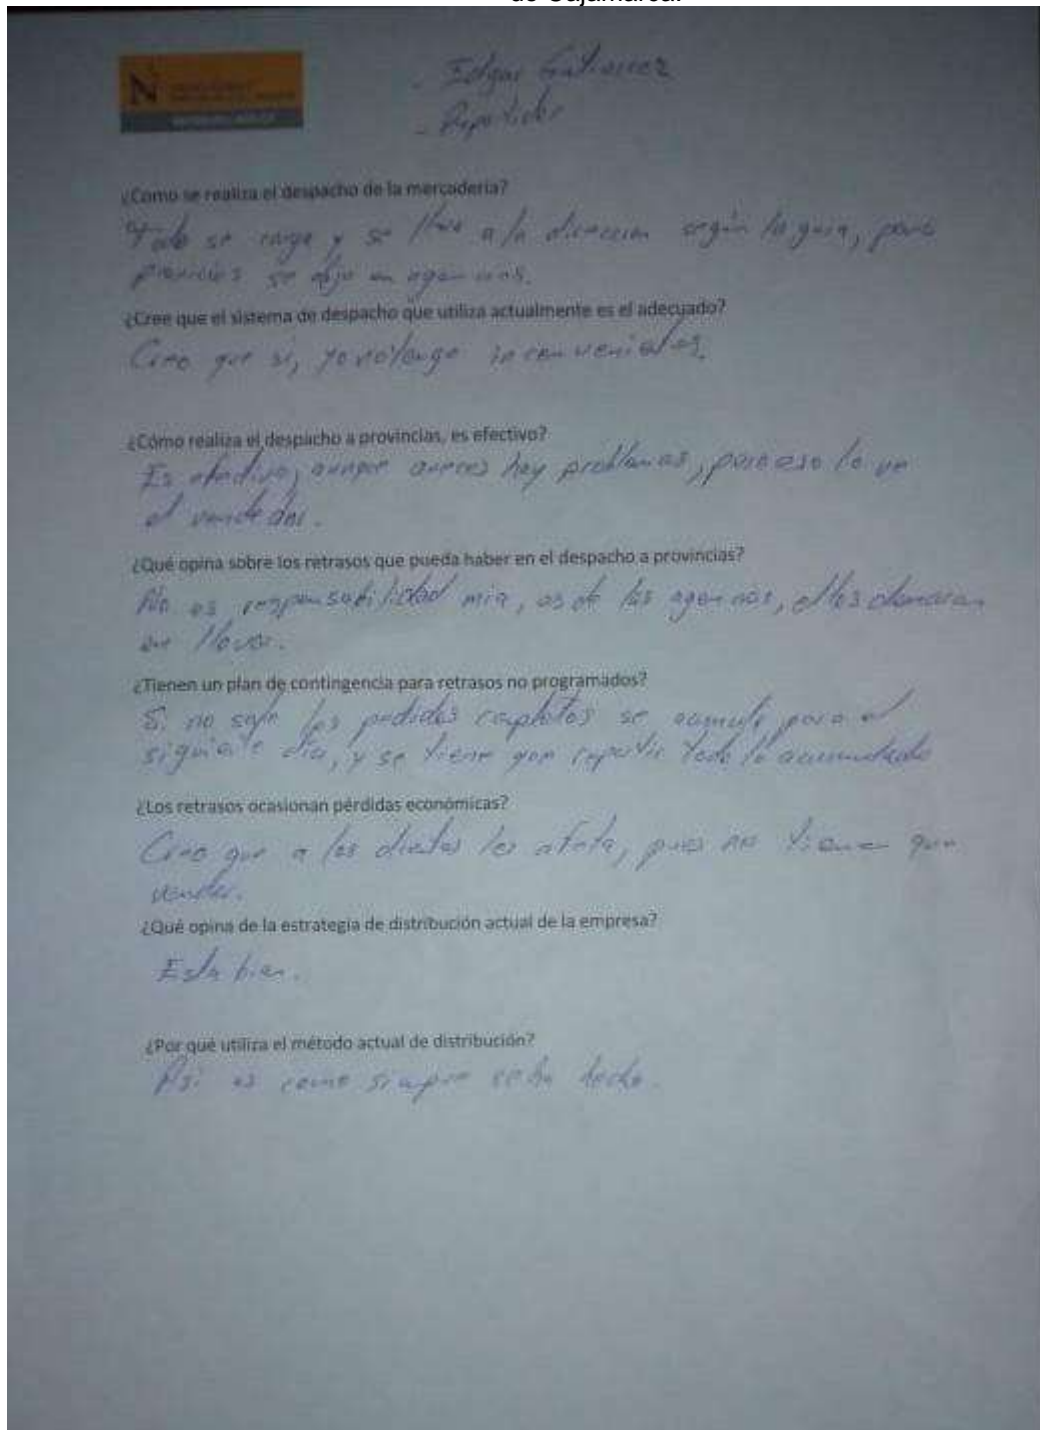 de Cajamarca.
N
- Edgar Gutierrez
- Repartidor
¿Como se realiza el despacho de la mercadería?
Todo se carga y se lleva a la direccion según la guia, para
provincias se deja en agencias.
¿Cree que el sistema de despacho que utiliza actualmente es el adecuado?
Creo que si, yo no tengo inconvenientes.
¿Cómo realiza el despacho a provincias, es efectivo?
Es efectivo, aunque aveces hay problemas, pero eso lo ve
el vendedor.
¿Qué opina sobre los retrasos que pueda haber en el despacho a provincias?
No es responsabilidad mia, es de las agencias, ellos demoran
en llevar.
¿Tienen un plan de contingencia para retrasos no programados?
Si no sale los pedidos completos se acumula para el
siguiente dia, y se tiene que repartir todo lo acumulado
¿Los retrasos ocasionan pérdidas económicas?
Creo que a los clientes les afecta, pues no tienen que
vender.
¿Qué opina de la estrategia de distribución actual de la empresa?
Esta bien.
¿Por qué utiliza el método actual de distribución?
Asi es como siempre se ha hecho.